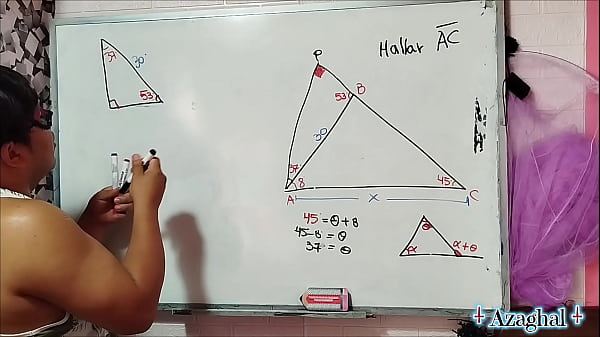 Hallar AC
37
30
53
P
53
B
30
37
8
A
45
C
x
45 = θ + 8
45 - 8 = θ
37 = θ
θ
α
α + θ
‡ Azaghal ‡